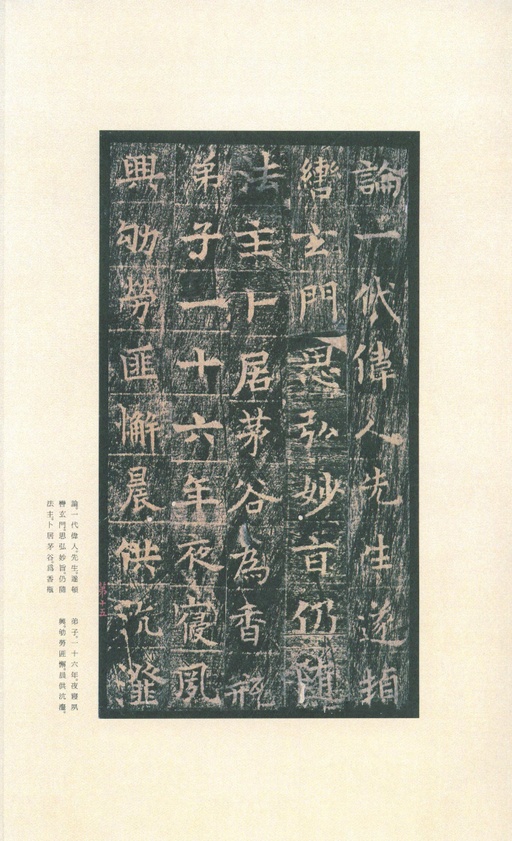 論一代偉人先生遂頓
轡玄門思弘妙旨仍隨
法主卜居茅谷為香瓶
弟子一十六年夜寢夙
興劬勞匪懈晨供沆瀣
論一代偉人先生遂頓
轡玄門思弘妙旨仍隨
法主卜居茅谷爲香瓶
弟子一十六年夜寢夙
興劬勞匪懈晨供沆瀣